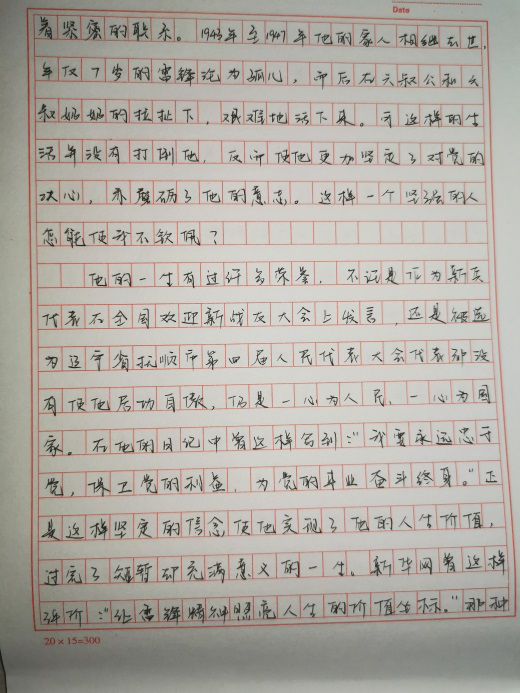 Date
着紧密的联系。1943年至1947年他的家人相继去世,
年仅7岁的雷锋沦为孤儿,而后在六叔公和六
叔奶奶的拉扯下,艰难地活下来。可这样的生
活并没有打倒他,反而使他更加坚定了对党的
决心,亦磨砺了他的意志。这样一个坚强的人
怎能使我不钦佩?
他的一生有过许多荣誉,不论是作为新兵
代表在全国欢迎新战友大会上发言,还是被选
为辽宁省抚顺市第四届人民代表大会代表都没
有使他居功自傲,仍是一心为人民,一心为国
家。在他的日记中曾这样写到:“我要永远忠于
党,保卫党的利益,为党的事业奋斗终身。”正
是这样坚定的信念使他实现了他的人生价值,
过完了短暂却充满意义的一生。新华网曾这样
评价:“让雷锋精神照亮人生的价值坐标。”那种
20×15=300